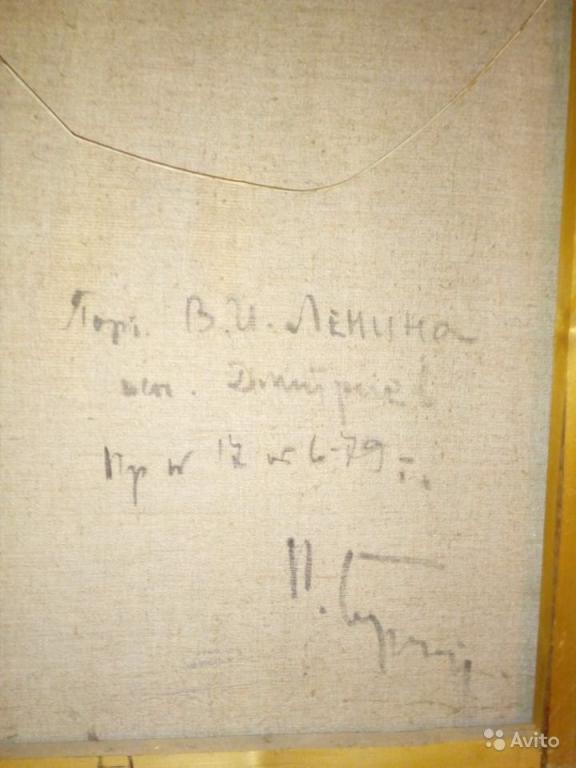 Порт. В.И. Ленина
исп. Дмитриев
Пр № 12 от 6-79 г.
Avito